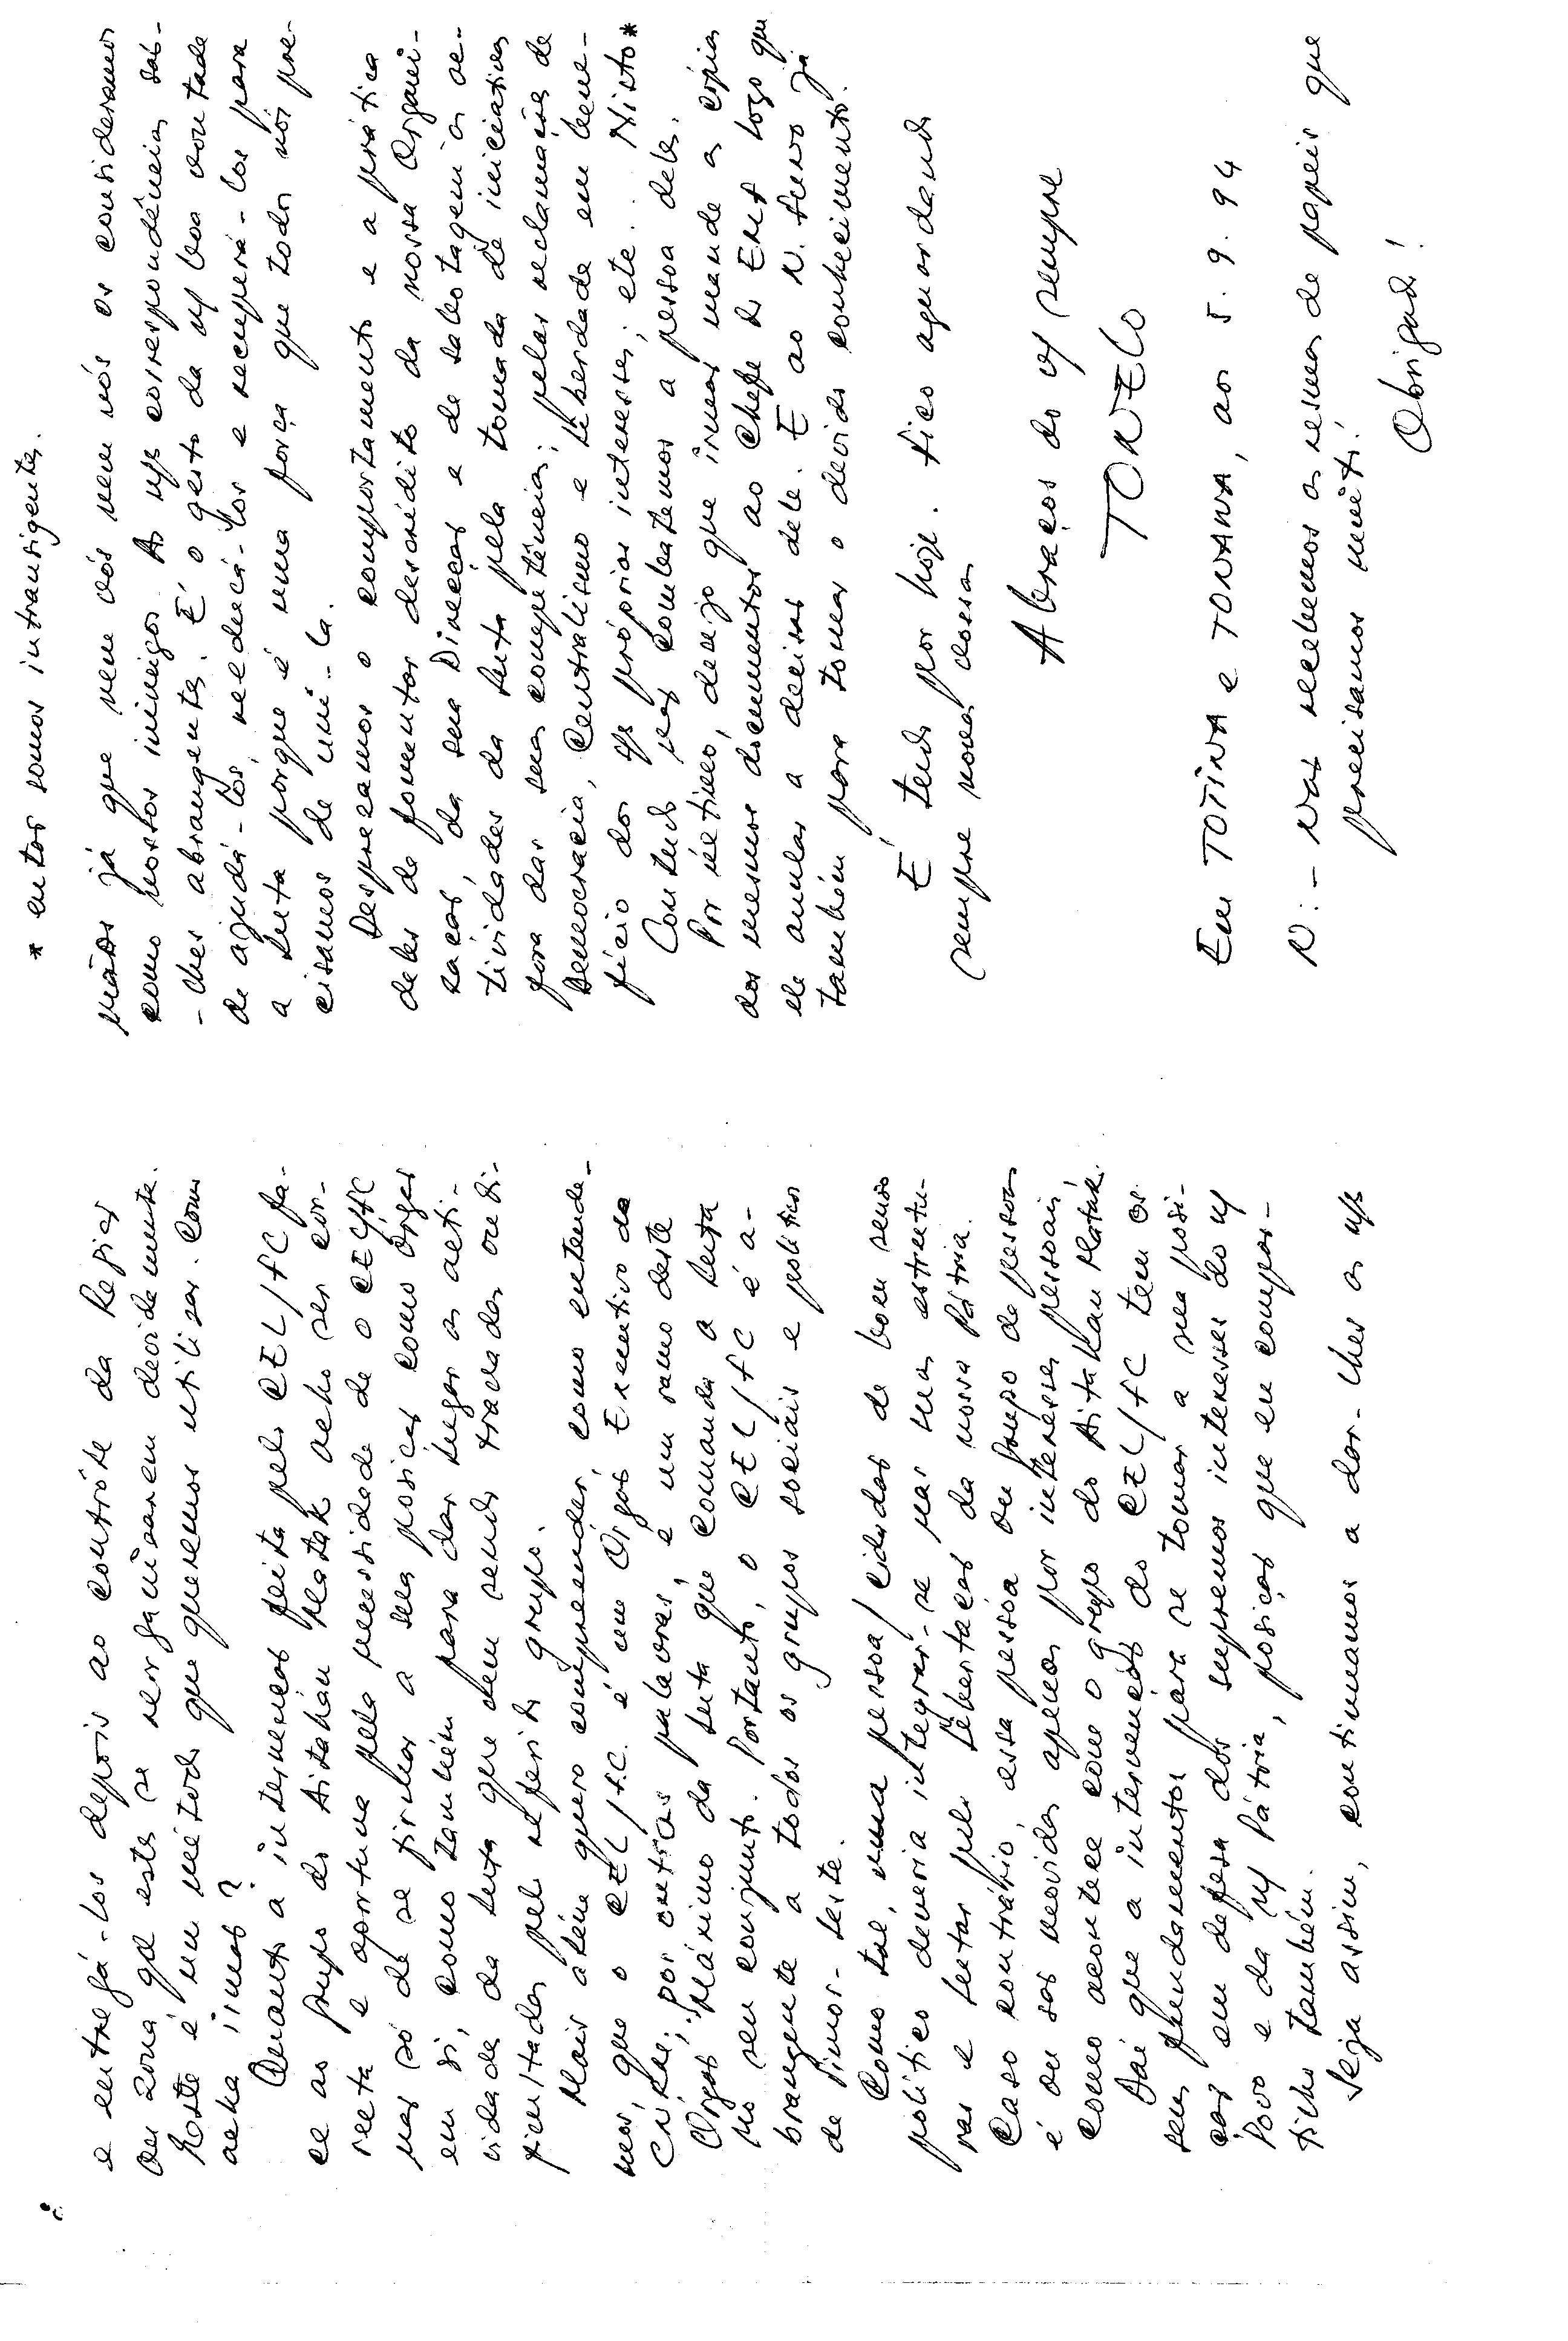 e entregá-los depois ao contrôle da Região
ou zona qd estes se reorganisarem devidamente.
Este é um método que queremos utilizar. Como
acha irmão?
Quanto à intervenção feita pelo CEL/FC fa-
ce ao grupo do Aitahán Matak acho ser cor-
recta e oportuna pela necessidade de o CEL/FC
não só de se firmar a sua posição como órgão
em si, como também para dar lugar às acti-
vidades da luta que vem sendo travadas ou di-
ficultadas pelo referido grupo.
Mais além quero compreender, como entende-
mos, que o CEL/F.C. é um Órgão Executivo do
CNRM; por outras palavras, é um ramo deste
Órgão Máximo da luta que comanda a luta
no seu conjunto. Portanto, o CEL/FC é a-
brangente a todos os grupos sociais e políticos
de Timor-Leste.
Como tal, uma pessoa/cidadão de bom senso
político deveria integrar-se nas suas estrutu-
ras e lutar pela libertação da nossa Pátria.
Caso contrário, essa pessoa ou grupo de pessoas
é ou são movidos apenas por interesses pessoais,
como acontece com o grupo do Aitahan Matak.
Daí que a intervenção do CEL/FC tem os
seus fundamentos para se tomar a sua posi-
ção em defesa dos supremos interesses do n/
Povo e da n/ Pátria, posição que eu compar-
tilho também.
Seja assim, continuamos a dar-lhes as n/s
mãos já que nem vós nem nós os consideramos
como nossos inimigos. As n/s correspondências são-
-lhes abrangentes. É o gesto da n/ boa vontade
de ajudá-los, reeducá-los e recuperá-los para
a luta porque é uma força que todos nós pre-
cisamos de uni-la.
Desprezamos o comportamento e a prática
deles de fomentar descrédito da nossa Organi-
zação, da sua Direcção e de sabotagem às ac-
tividades da luta pela tomada de iniciativas
fora das suas competências; pelas reclamações de
Democracia, Centralismo e liberdade em bene-
fício dos s/s próprios interesses; etc.. Nisto*
Contudo não combatemos a pessoa deles.
Por último, desejo que irmão mande as cópias
dos mesmos documentos ao Chefe do EMF logo que
ele anular a decisão dele. E ao N. Funo já
também para tomar o devido conhecimento.
* entor somos intransigentes.
É tudo por hoje. Fico aguardando
sempre novas vossas
Abraços do v/ sempre
TONELO
Em TOTINA e TONANA, aos 5.9.94
N:- Não recebemos as resmas de papeis que
precisamos muito!
Obrigado!